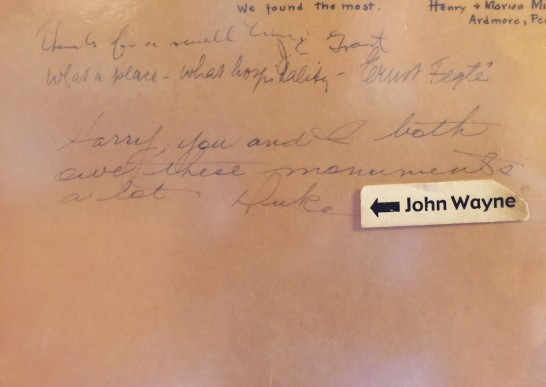 We found the most.
Henry & Marion Mi
Ardmore, Pe
Thanks for a swell time
What a place - what hospitality - Ernst Fegté
Harry, you and I both
owe these monuments
a lot Duke
John Wayne